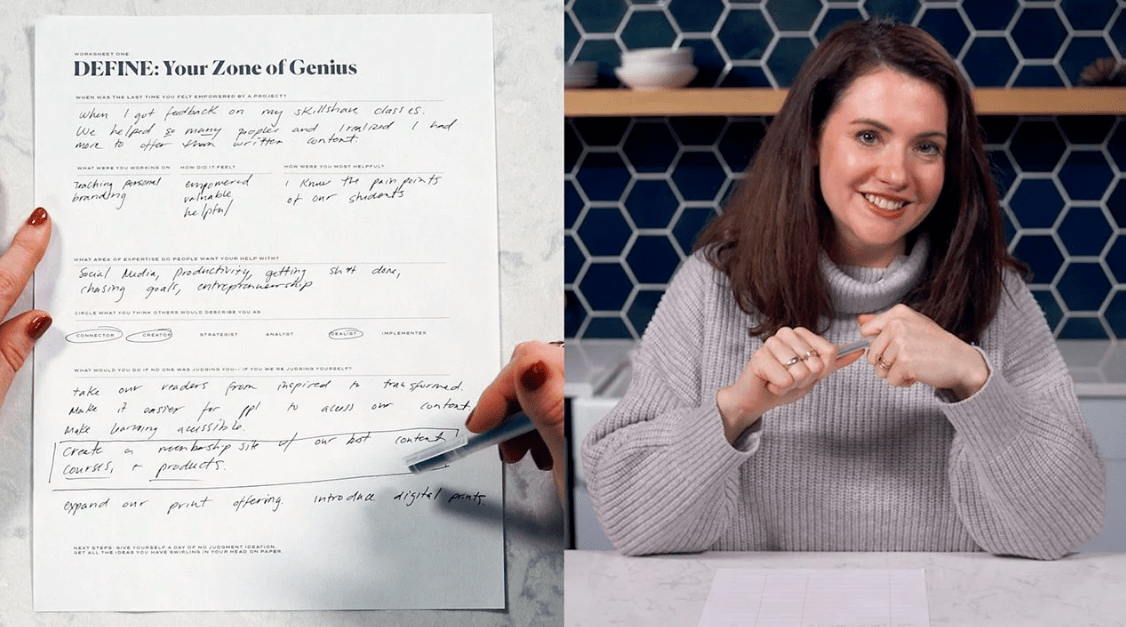 WORKSHEET ONE
DEFINE: Your Zone of Genius
WHEN WAS THE LAST TIME YOU FELT EMPOWERED BY A PROJECT?
When I got feedback on my skillshare classes.
We helped so many people and I realized I had
more to offer than written content.
WHAT WERE YOU WORKING ON
HOW DID IT FEEL?
HOW WERE YOU MOST HELPFUL?
Teaching personal
branding
empowered
valuable
helpful
I knew the pain points
of our students
WHAT AREA OF EXPERTISE DO PEOPLE WANT YOUR HELP WITH?
Social Media, productivity, getting sh*t done,
chasing goals, entrepreneurship
CIRCLE WHAT YOU THINK OTHERS WOULD DESCRIBE YOU AS
CONNECTOR CREATOR STRATEGIST ANALYST IDEALIST IMPLEMENTER
WHAT WOULD YOU DO IF NO ONE WAS JUDGING YOU-- IF YOU WE'RE JUDGING YOURSELF?
take our readers from inspired to transformed.
Make it easier for ppl to acess our content.
Make learning acessible.
Create a membership site w/ our best content
courses, + products.
expand our print offering. introduce digital prints.
NEXT STEPS: GIVE YOURSELF A DAY OF NO JUDGMENT IDEATION.
GET ALL THE IDEAS YOU HAVE SWIRLING IN YOUR HEAD ON PAPER.